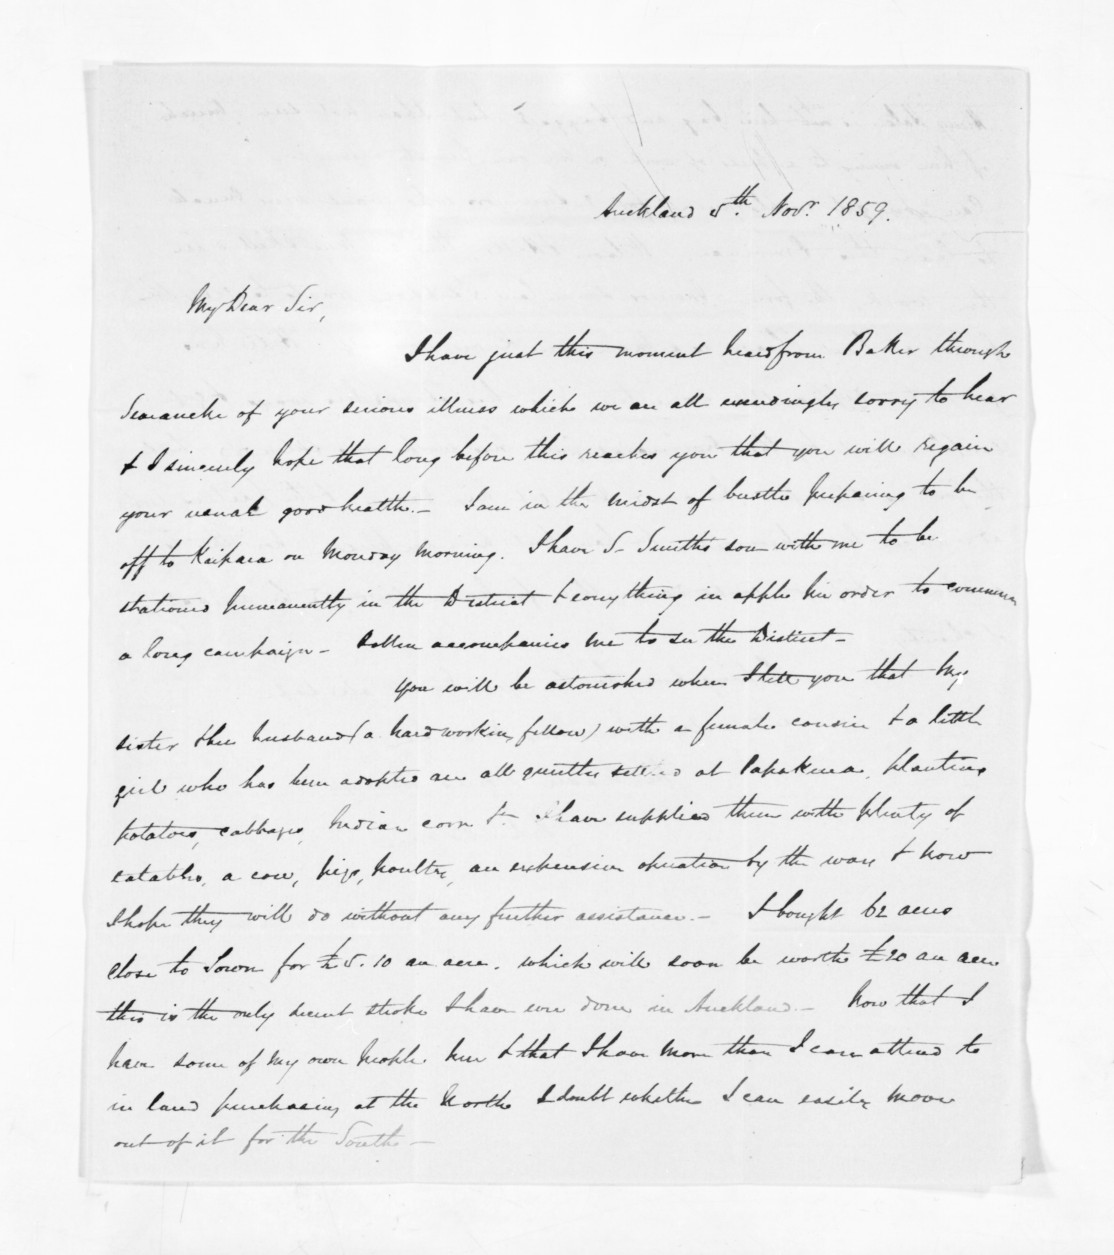 Auckland 5th. Novr. 1859.
My Dear Sir,
I have just this moment heard from Baker through
Searancke of your serious illness which we are all exceedingly sorry to hear
& I sincerely hope that long before this reaches you that you will regain
your usual good health. — I am in the midst of bustle preparing to be
off to Kaipara on Monday morning. I have S- Smiths son with me to be
stationed permanently in the District & everything in apple pie order to commence
a long campaign — Rollen accompanies me to see the District —
You will be astonished when I tell you that my
sister & her husband (a hard working fellow) with a female cousin & a little
girl who has been adopted are all quietly settled at Papakura, planting
potatoes, cabbages, Indian corn &c I have supplied them with plenty of
eatables, a cow, pigs, poultry, an expensive operation by the way & now
I hope they will do without any further assistance. — I bought 62 acres
close to Town for £5.10 an acre. which will soon be worth £20 an acre
this is the only decent stroke I have ever done in Auckland. — Now that I
have some of my own people here & that I have more than I can attend to
in land purchasing at the North I doubt whether I can easily move
out of it for the South —